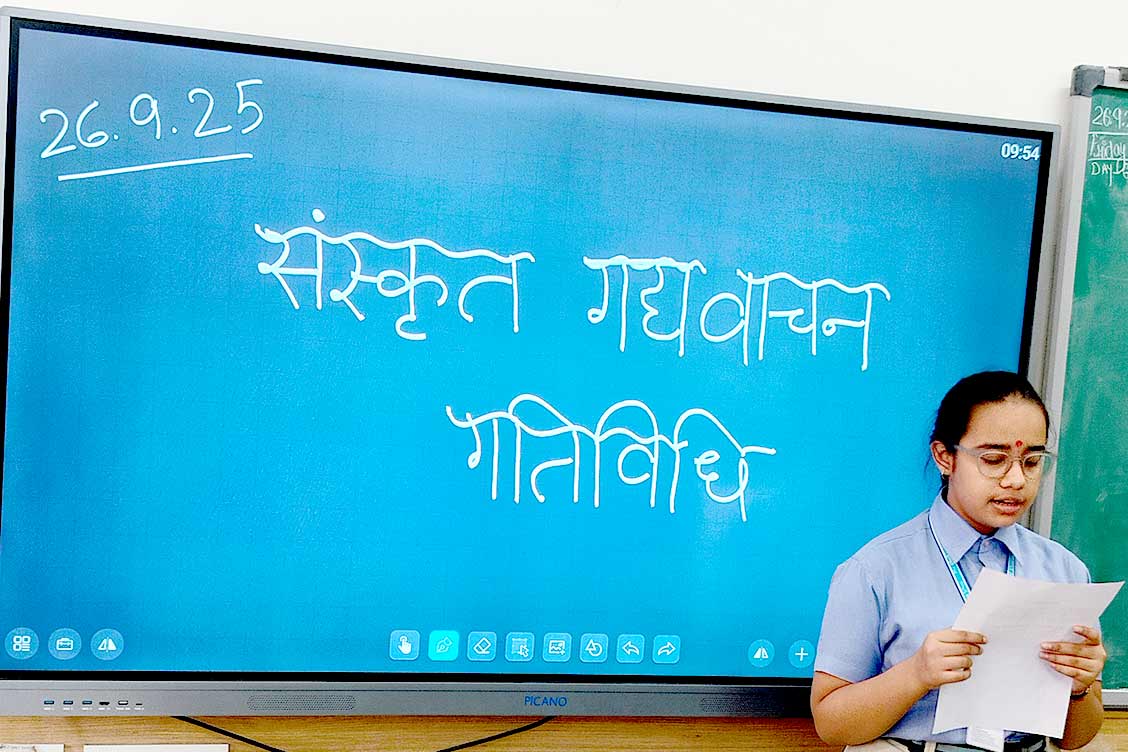 26.9.25
09:54
संस्कृत गद्यवाचन
गतिविधि
PICANO
26.9.
Friday
DAY